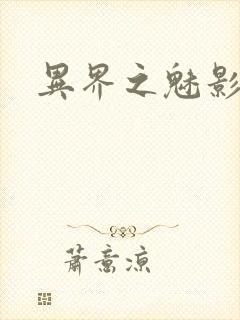 異界之魅影
蕭意涼